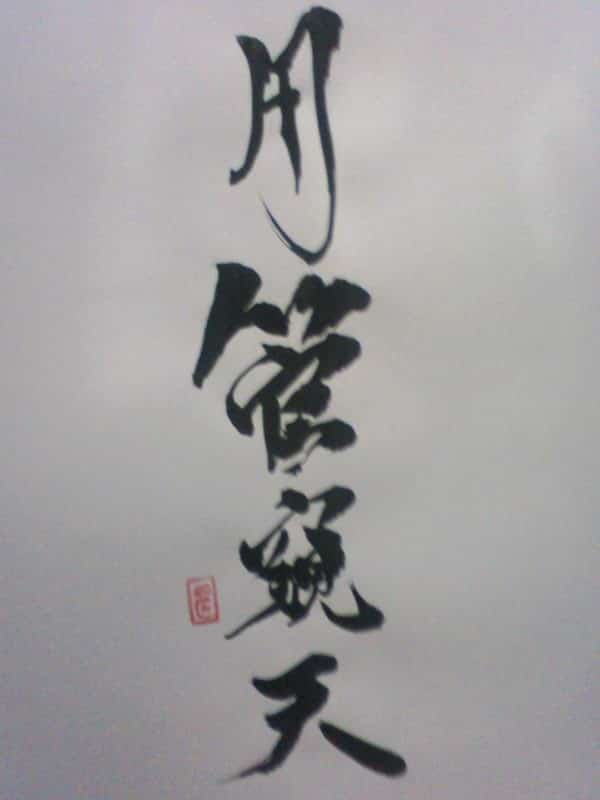 用管窺天